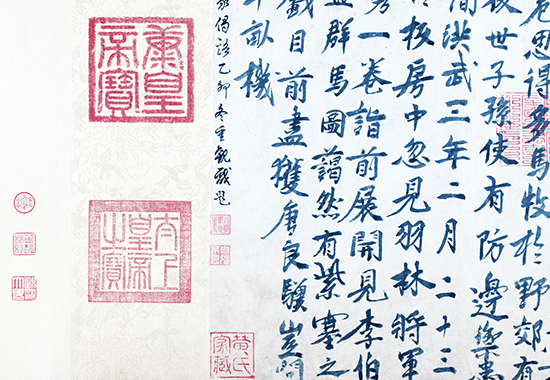 思得多馬牧於野郊有
世子孫使有防邊禦
洪武三年二月二十三
房中忽見羽林將軍
一卷詣前展開見李伯
群馬圖藹然有紫塞之
戲目前盡獲唐良驥豈問
畝機
乙卯冬重觀
皇帝寶
太上皇帝之寶
黃氏家藏